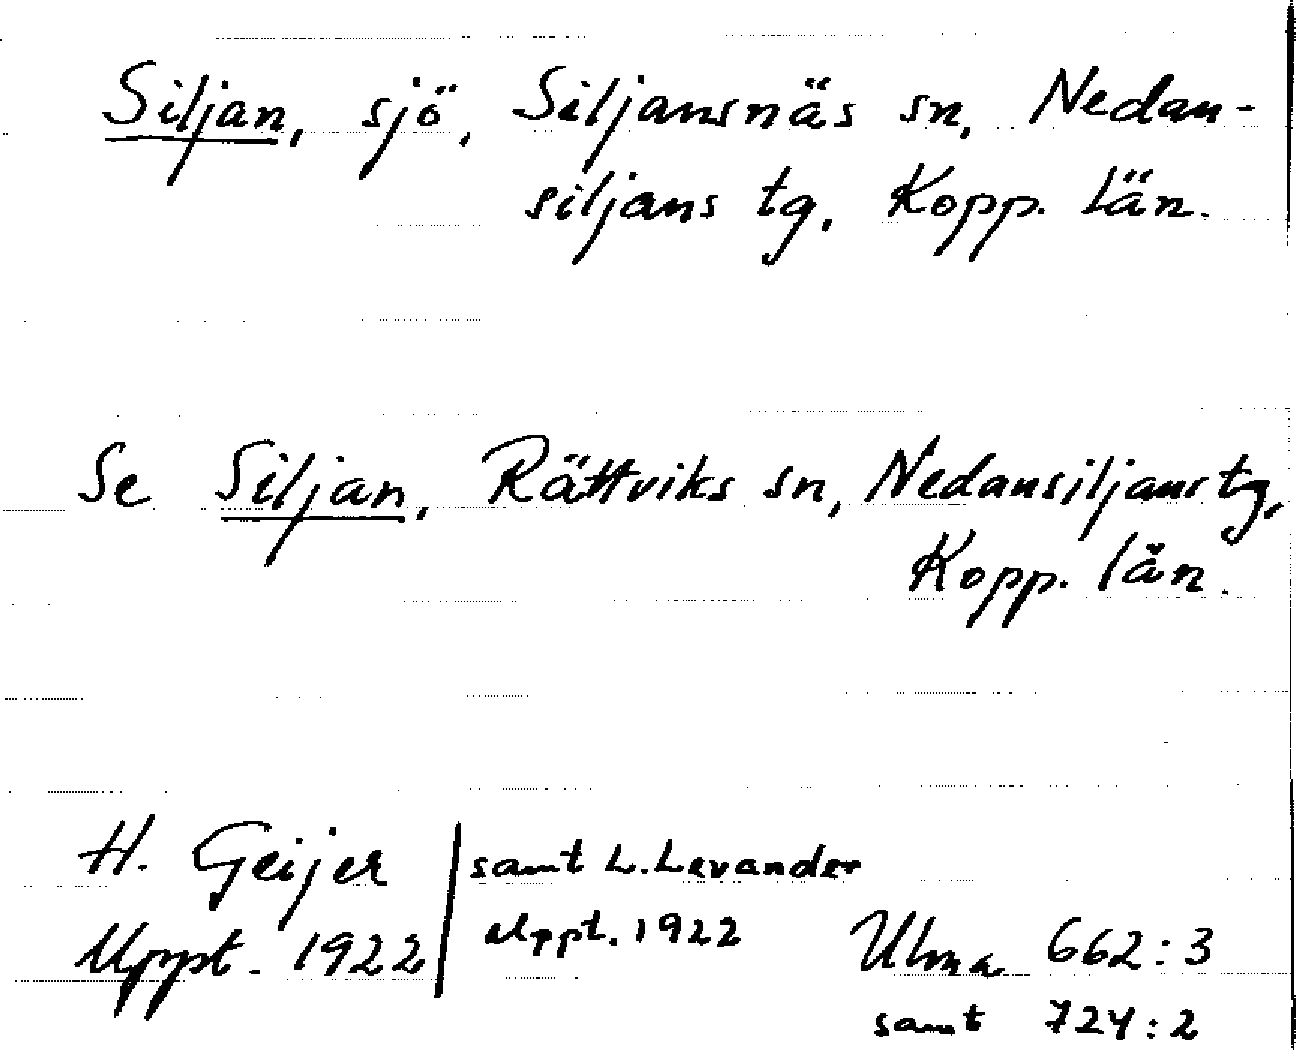 Siljan, sjö, Siljansnäs sn, Nedan-
siljans tg, Kopp. län.
Se Siljan, Rättviks sn, Nedansiljans tg,
Kopp. län.
H. Geijer
Uppt. 1922
samt L. Levander
Uppt. 1922
Ulma 662:3
samt 724:2